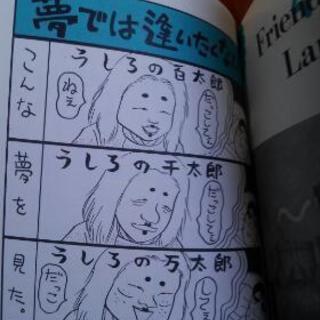 夢では逢いたくな
こんな夢を見た。
うしろの百太郎
だっこしてぇ
ねぇ
うしろの千太郎
だっこしてぇ
うしろの万太郎
してぇ
だっこ
Friend
Lar